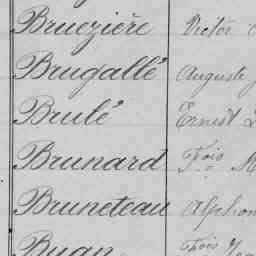 Bruezière Victor
Brugallé Auguste
Brulé Ernest
Brunard Frois
Bruneteau Alphon
Bruan Frois